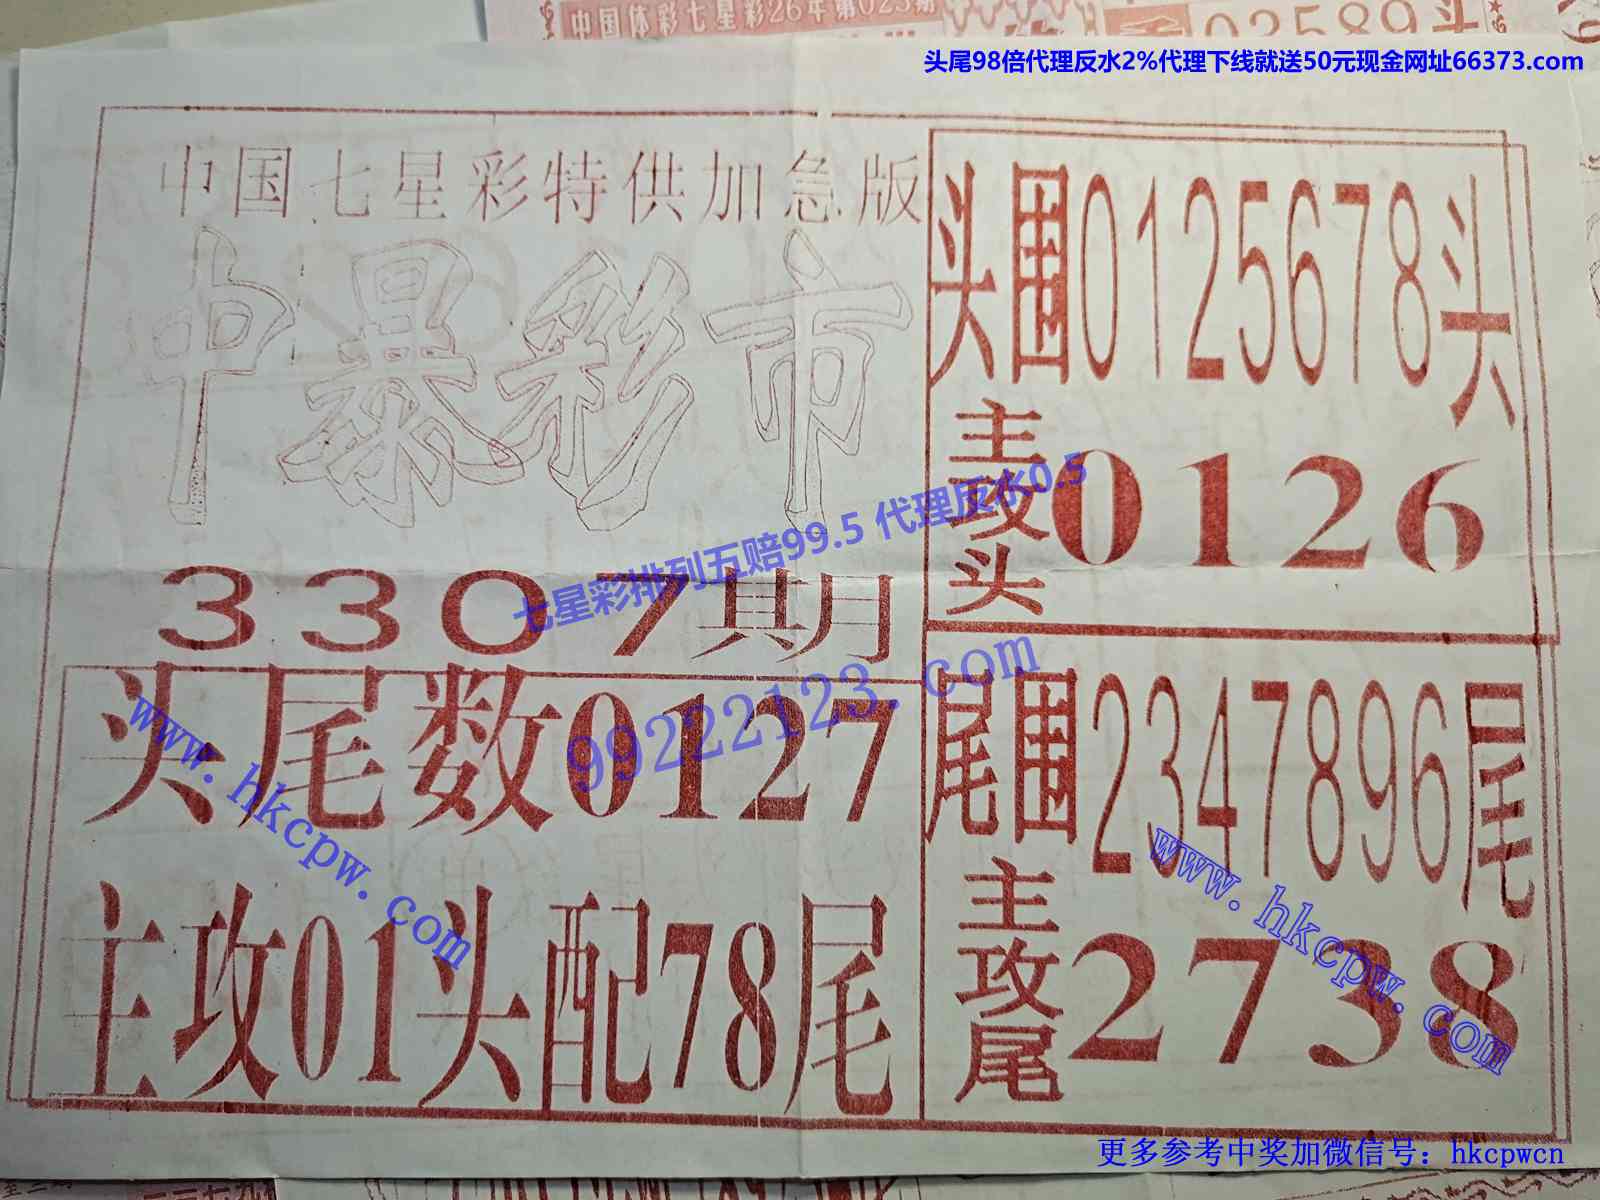 中国体彩七星彩26年第023期
03589头
头尾98倍代理反水2%代理下线就送50元现金网址66373.com
中国七星彩特供加急版
中暴彩市
3307期
头尾数0127
主攻01头配78尾
头围0125678头
主攻头0126
尾围2347896尾
主攻尾2738
七星彩排列五赔99.5 代理反水0.5
99222123.com
www.hkcpw.com
www.hkcpw.com
更多参考中奖加微信号：hkcpwcn